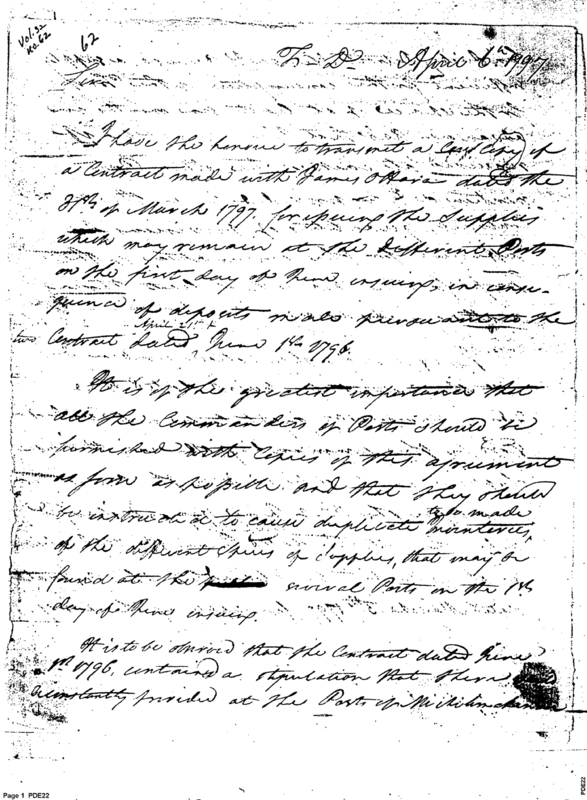 Vol. 32
No. 62
62
T. D. April 6th 1797
Sir
I have the honour to transmit a Copy of
a Contract made with James OHara dated the
of March 1797 for issuing the Supplies
which may remain at the different Posts
on the first day of June insuing, in conse-
quence of deposits made pursuant to the
April 21st &
two Contract dated, June 1th 1796.
It is of the greatest importance that
all the Commanders of Posts should be
furnished with Copies of this agreement
as soon as possible and that they should
be instructed to cause duplicate inventories,
to be made
of the different Species of Supplies, that may be
found at the several Posts on the 1th
day of June insuing.
It is to be observed that the Contract dated June
1th 1796, contained a stipulation that there
constantly provided at the Posts of Michilimackinac
Page 1 PDE22
PDE22